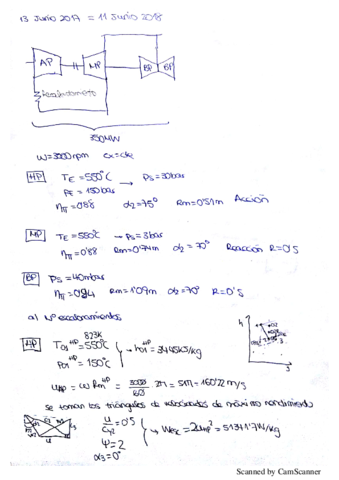 13 Junio 2017 = 11 Junio 2018
AP
MP
BP
BP
Recalentamiento
350MW
ω=3000rpm cx=cte
HP TE=550ºC → Ps=30bar
PE=150bar
ηTT=0'88 α2=75º Rm=0'51m Acción
MP TE=550ºC → Ps=3bar
ηTT=0'88 Rm=0'74m α2=70º Reacción R=0'5
BP Ps=40mbar
Rm=1'09m α2=70º R=0'5
a) Nº escalonamientos
823K
T01 HP=550ºC
P01 HP=150ºC
h01 HP=3445kJ/kg
uHP=ωRm HP = 3000/60 2π = 160'22 m/s
se toman los triángulos de velocidades de máximo rendimiento
u/c2=0'5
Ψ=2
α3=0º
Wesc=2uHP²=51341'7W/kg
h
s
Scanned by CamScanner